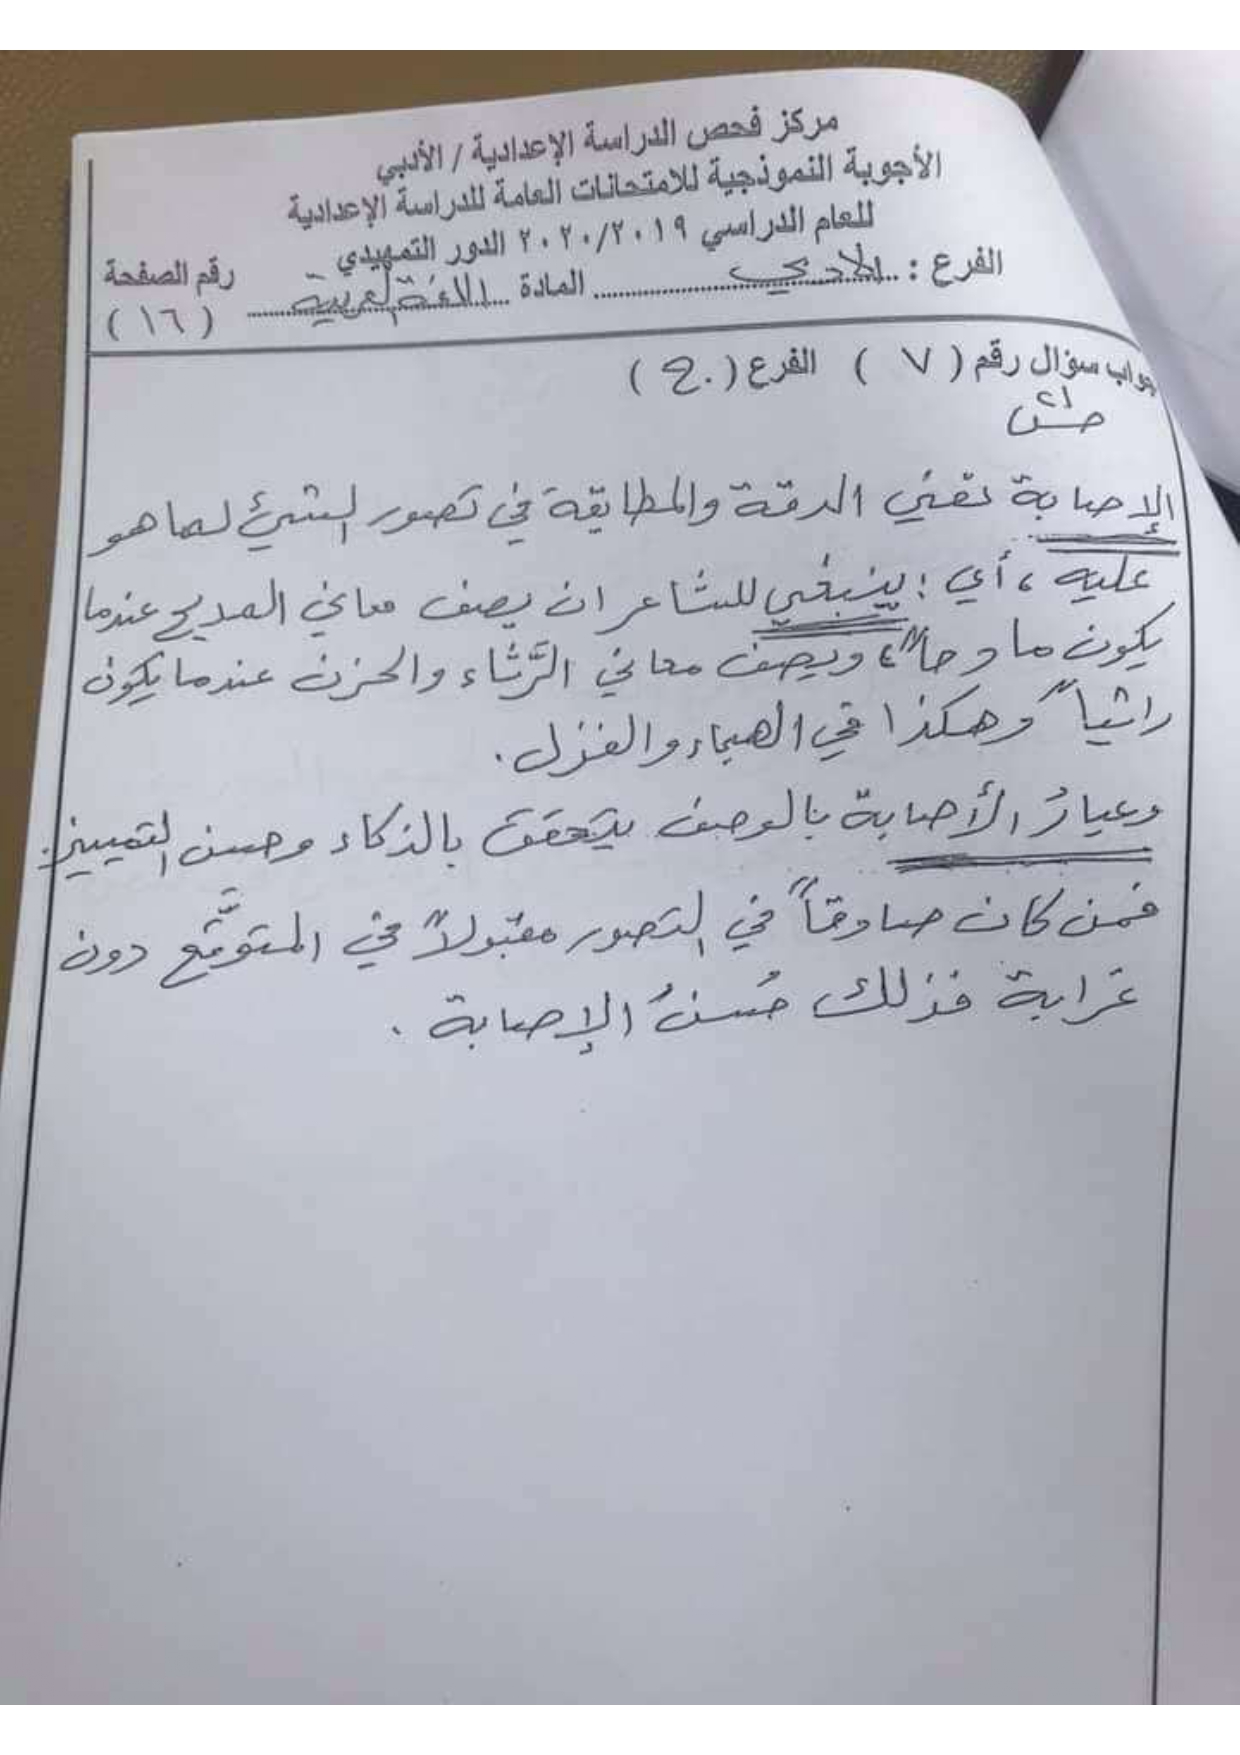 مركز فحص الدراسة الإعدادية / الأدبي
الأجوبة النموذجية للامتحانات العامة للدراسة الإعدادية
للعام الدراسي ٢٠٢٠/٢٠١٩ الدور التمهيدي
الفرع : الادبي المادة اللغة العربية رقم الصفحة
( ١٦ )
جواب سؤال رقم ( ٧ ) الفرع ( ج )
الإصابة تعني الدقة والمطابقة في تصور الشيء كما هو
عليه ، أي : ينبغي للشاعر ان يصف معاني المديح عندما
يكون مادحاً ، ويصف معاني الرَّثاء والحزن عندما يكون
راثياً وهكذا في الهجاء والغزل .
وعيارُ الأصابة بالوصف يتحقق بالذكاء وحسن التمييز .
فمن كان صادقاً في التصور مقبولاً في المتوقَّع دون
غرابة فذلك حُسنُ الإصابة .